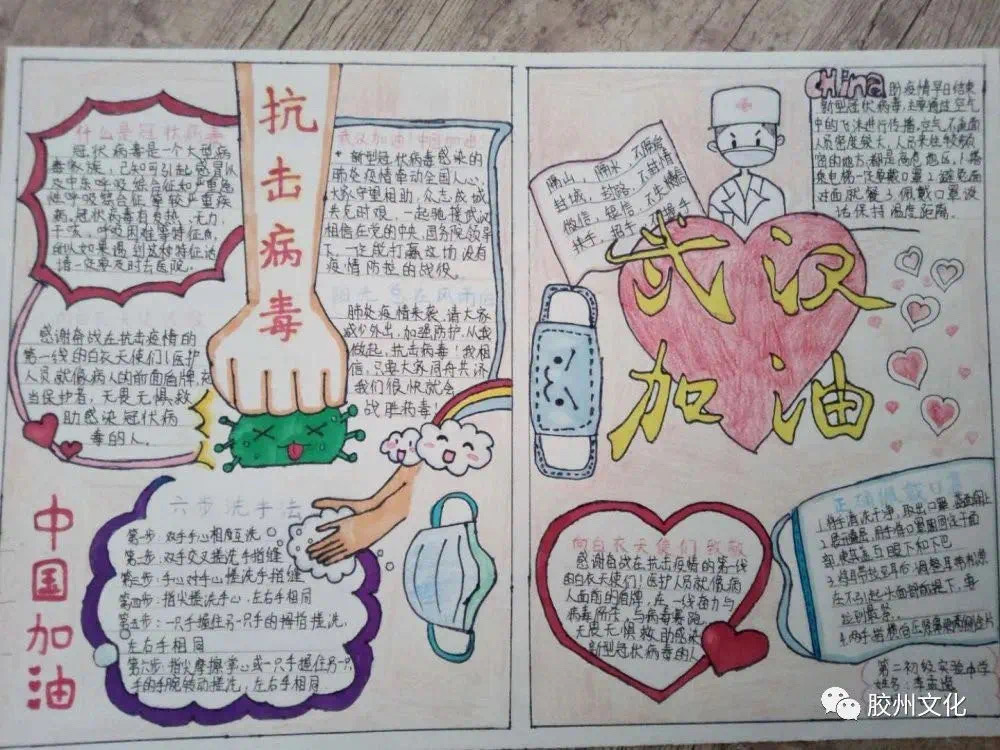 抗击病毒
什么是冠状病毒
冠状病毒是一个大型病
毒家族，已知可引起感冒以
及中东呼吸综合征和严重急
性呼吸综合征等较严重疾
病。冠状病毒有发热、无力、
干咳，呼吸困难等特征点，
所以如果遇到这种特征
请一定要及时去医院。
武汉加油！中国加油！
新型冠状病毒感染的
肺炎疫情牵动全国人心，
大家守望相助，众志成城
共克时艰，一起驰援武汉
相信在党的中央、国务院领导
下，一定能打赢这场没有
疫情防控的战役。
阳光总在风雨后
肺炎疫情来袭，请大家
减少外出，加强防护，从我
做起，抗击病毒！我相
信，只要大家同舟共济
我们很快就会
战胜病毒！
感谢奋战在抗击疫情的
第一线的白衣天使们！医护
人员就像病人的前面盾牌，
当保护者，无畏无惧，救
助感染冠状病
毒的人。
中国加油
六步洗手法
第一步：双手手心相互搓洗
第二步：双手交叉搓洗手指缝
第三步：手心对手心搓洗手指缝
第四步：指尖搓洗手心，左右手相同
第五步：一只手握住另一只手的拇指搓洗，
左右手相同
第六步：指尖摩擦掌心或一只手握住另一只
手的手腕转动搓洗，左右手相同
隔山，隔水，不隔爱
封城，封路，不封情
微信，短信，不失信
挂手，招手，握手
China
助疫情早日结束
新型冠状病毒，主要通过空气
中的飞沫进行传播，空气不流通
人员密度较大，人员来往较频
繁的地方，都是高危地区，1.搭
乘电梯一定要戴口罩2.避免面
对面就餐3.佩戴口罩说
话保持适度距离。
武汉
加油
向白衣天使们致敬
感谢奋战在抗击疫情的第一线
的白衣天使们！医护人员就像病
人面前的盾牌，在一线奋力与
病毒所在，与病毒赛跑，
无畏无惧救助感染
新型冠状病毒的人
正确佩戴口罩
1.将手清洗干净，取出口罩，蓝面朝上
部，使其盖至眼下和下巴
4.两手指
第二初级实验中学
姓名：李
胶州文化